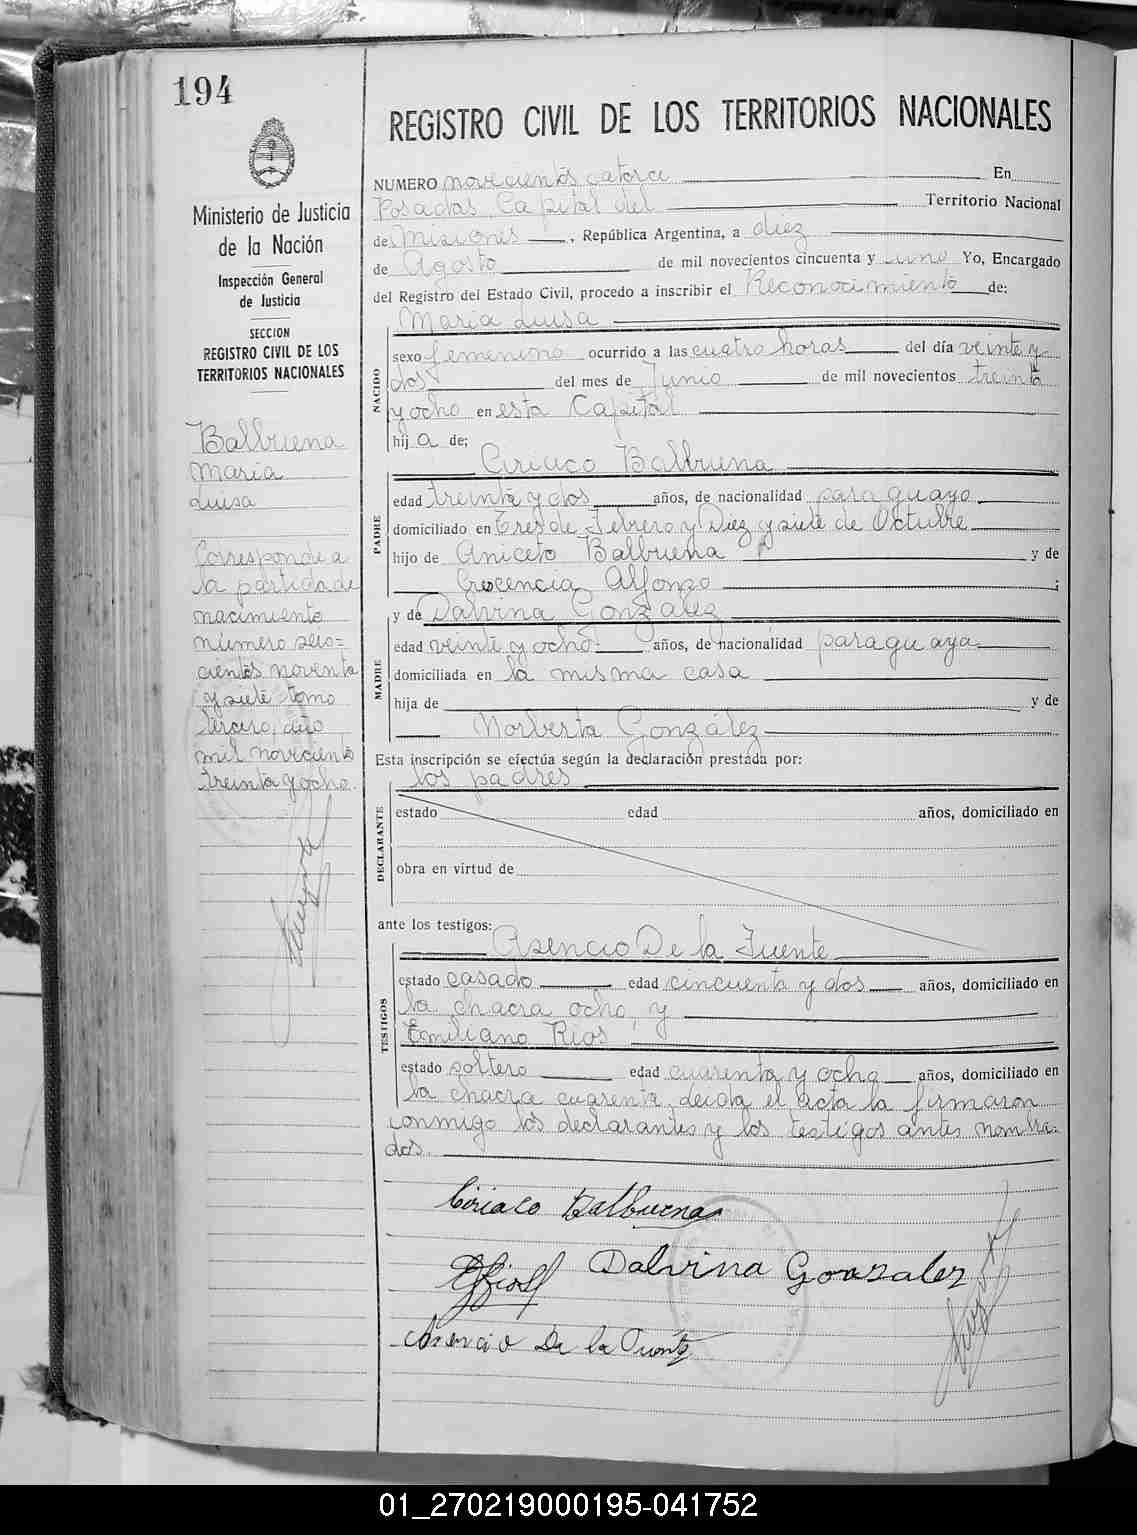 194
Ministerio de Justicia
de la Nación
Inspección General
de Justicia
SECCION
REGISTRO CIVIL DE LOS
TERRITORIOS NACIONALES
Balbuena
Maria
Luisa
Corresponde a
la partida de
nacimiento
número seis=
cientos noventa
y siete tomo
tercero, año
mil noveciento
treinta y ocho.
REGISTRO CIVIL DE LOS TERRITORIOS NACIONALES
NUMERO novecientos catorce En
Posadas, Capital del Territorio Nacional
de Misiones, República Argentina, a diez
de Agosto de mil novecientos cincuenta y uno Yo, Encargado
del Registro del Estado Civil, procedo a inscribir el Reconocimiento de:
Maria Luisa
NACIDO
sexo femenino ocurrido a las cuatro horas del día veinte y
dos del mes de Junio de mil novecientos treinta
y ocho en esta Capital
hij a de;
Ciriaco Balbuena
PADRE
edad treinta y dos años, de nacionalidad paraguayo
domiciliado en Tres de Febrero y Diez y siete de Octubre
hijo de Aniceto Balbuena y de
Crecencia Alfonzo ;
y de Dalvina González
MADRE
edad veinte y ocho años, de nacionalidad paraguaya
domiciliada en la misma casa
hija de y de
Norberta González
Esta inscripción se efectúa según la declaración prestada por:
los padres
DECLARANTE
estado edad años, domiciliado en
obra en virtud de
ante los testigos:
Asencio De la Fuente
TESTIGOS
estado casado edad cincuenta y dos años, domiciliado en
la chacra ocho, y
Emiliano Rios
estado soltero edad cuarenta y ocho años, domiciliado en
la chacra cuarenta, leida el acta la firmaron
conmigo los declarantes y los testigos antes nombra-
dos.
Ciriaco Balbuena
Dalvina Gonzalez
Asencio De la Fuente
01_270219000195-041752